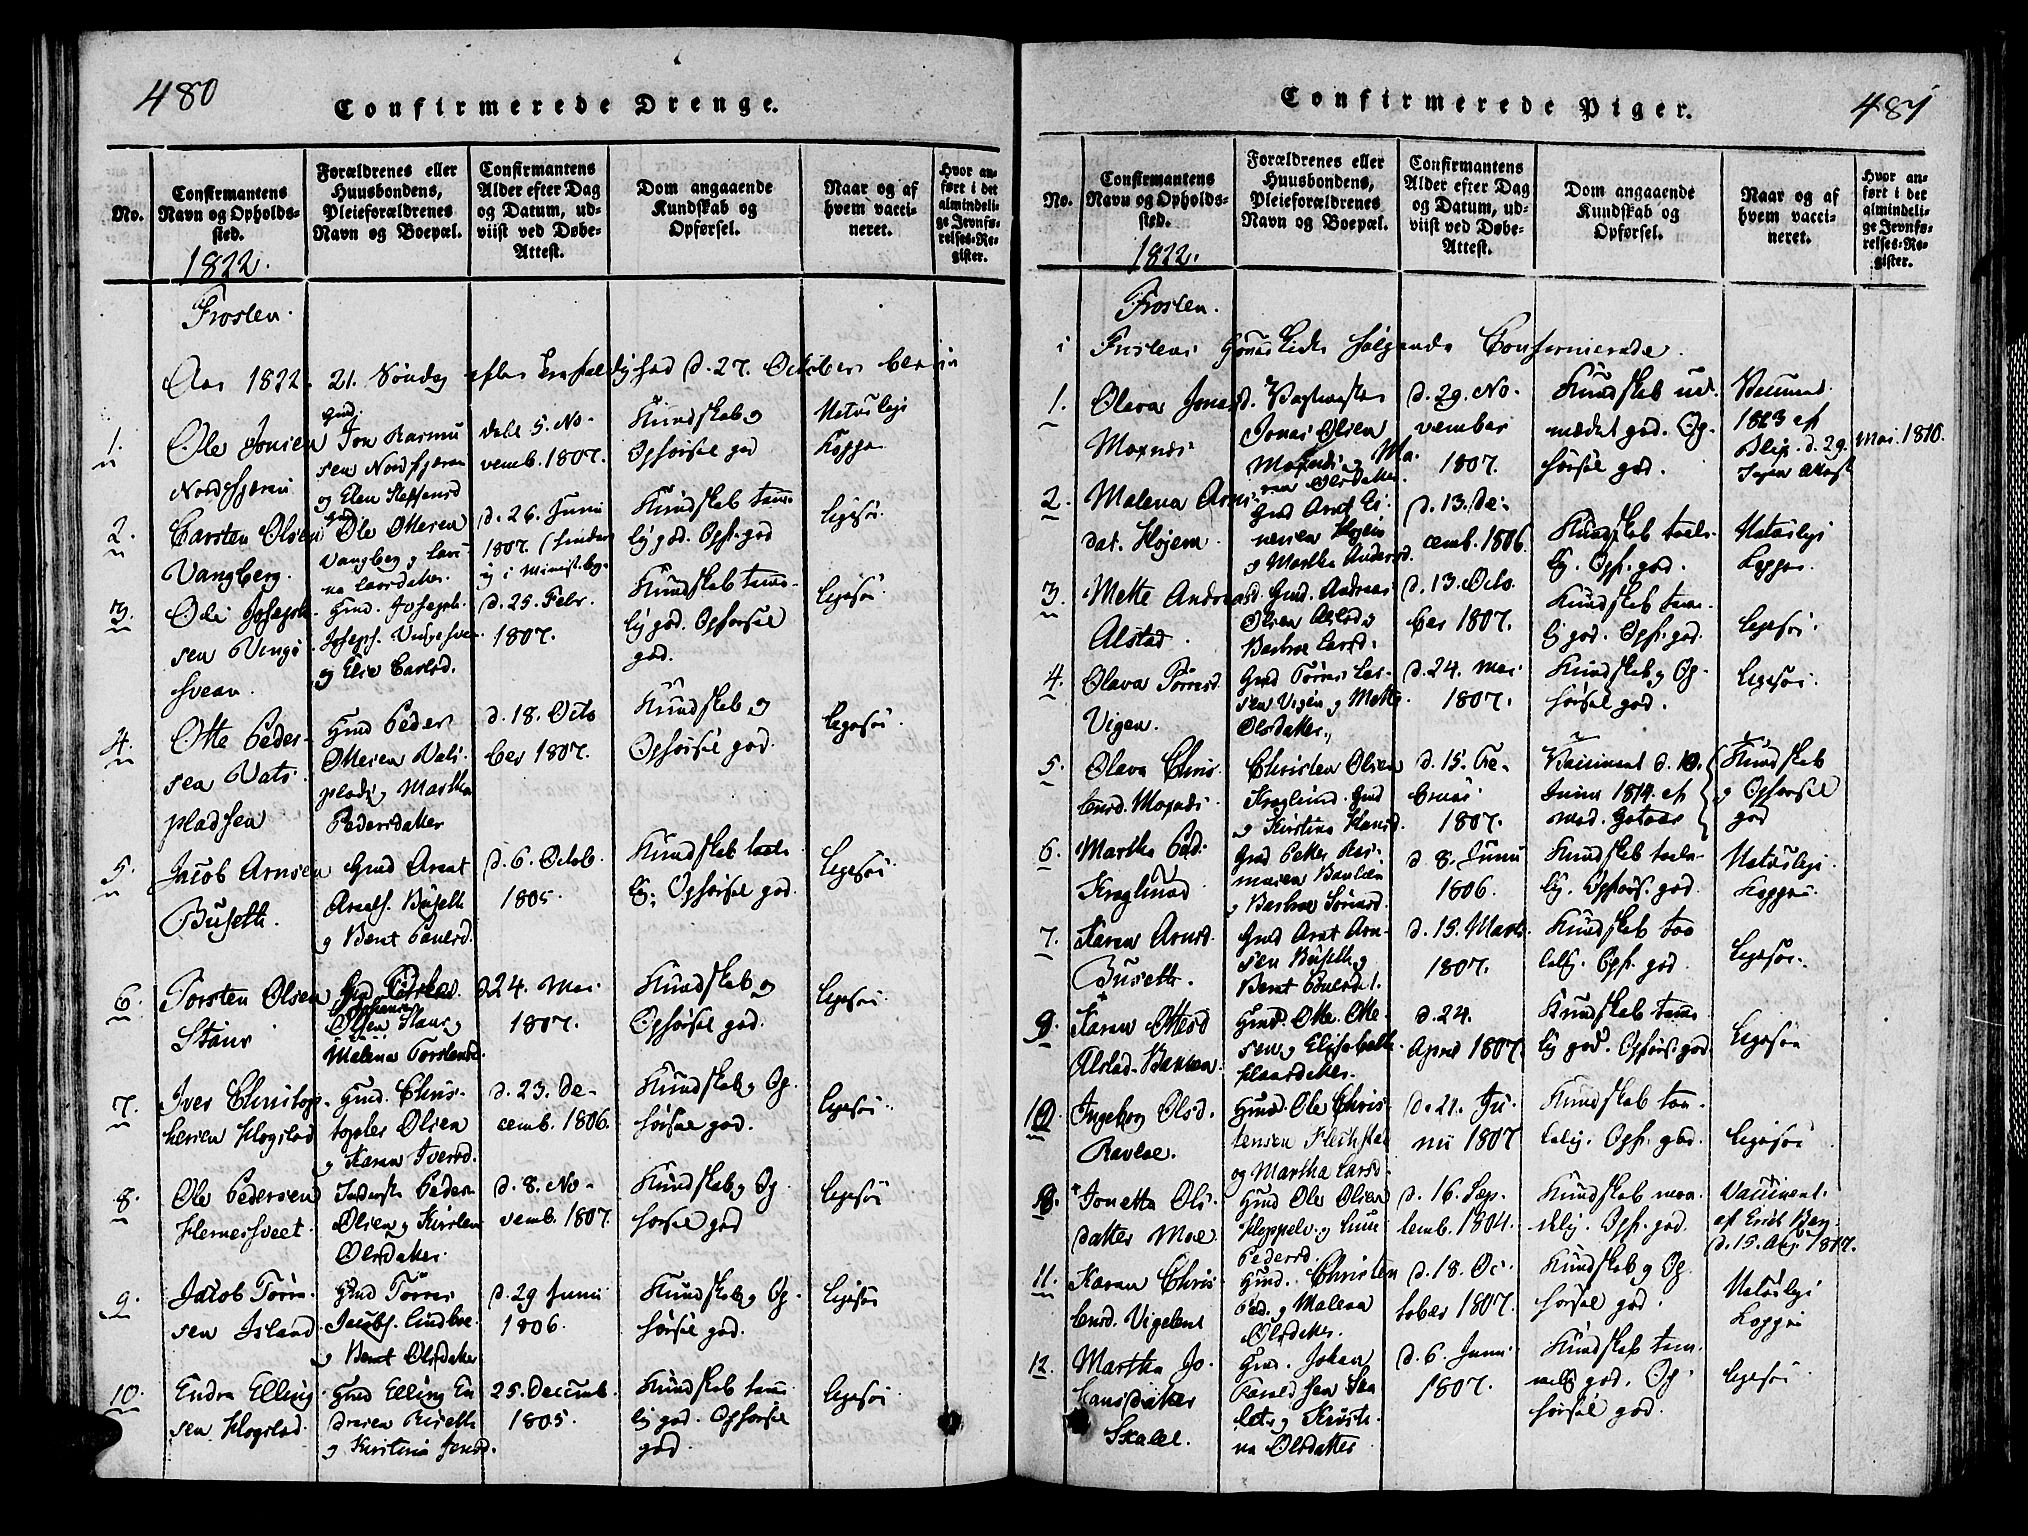 480
Confirmerede Drenge.
No.
Confirmantens
Navn og Opholds-
sted.
1822.
Forældrenes eller
Huusbondens,
Pleieforældrenes
Navn og Boepæl.
Confirmantens
Alder efter Dag
og Datum, ud-
viist ved Døbe-
Attest.
Dom angaaende
Kundskab og
Opførsel.
Naar og af
hvem vacci-
neret.
Hvor an-
ført i det
almindeli-
ge Jevnfø-
relses-Re-
gister.
Frosten.
Aar 1822. 21. Søndag efter Trefoldighed d. 27. October
1.
Ole Jonsen
Gmd.
Jon Rasmu
sen
og Elen
5. No-
vemb. 1807.
Kundskab og
Opførsel god
Naturlige
Kopper
2.
Carsten Olsen
Vangberg.
Ole Ottesen
Vangberg og
na Larsdatter.
d. 26. Juni
1807.
Kundskab tem
lig god. Opf. god
ligesaa.
3.
Ole Joseph
sen
svean.
Gmd. Joseph
Josephs.
og
d. 25. Febr.
1807.
Kundskab tem-
lig god. Opførsel
god.
ligesaa.
4.
Otte Peder-
sen Vats
pladsen
Gmd Peder
Ottesen Vats-
plads og Martha
Pedersdatter
d. 18. Octo
ber 1807.
Kundskab og
Opførsel god.
ligesaa.
5.
Jacob Arnsen
Busetth.
Gmd Arnt
Arnts. Busetth
og Beret
d. 6. Octob.
1805.
Kundskab taale
lig; Opførsel god.
ligesaa
6.
Torsten Olsen
Staur
Gmd
Olsen Staur og
Malena Torstensd.
d. 24. Mai
1807.
Kundskab og
Opførsel god.
ligesaa
7.
Iver Christop-
hersen Hogstad
Gmd. Chris-
topher Olsen
og Karen Iversd.
d. 23. De-
cemb. 1806.
Kundskab og Op-
førsel god.
ligesaa.
8.
Ole Pedersen
Inderst Peder
Olsen og Kirsten
Olsdatter.
d. 8. No-
vemb. 1807.
Kundskab og Op
førsel god
ligesaa
9.
Jacob Torre
sen Island
Gmd Tørres
Jacobs. Lindboe
og Beret Olsdatter
d. 29 Juni
1806.
Kundskab og Op-
førsel god.
ligesaa
10.
Endre Elling-
sen Hogstad
Gmd Elling En
dresen
og Kirstine Jensd.
25. Decemb.
1805.
Kundskab tem
lig god. Opførsel
god.
ligesaa
481
Confirmerede Piger.
No.
Confirmantens
Navn og Opholds-
sted.
1822.
Forældrenes eller
Huusbondens,
Pleieforældrenes
Navn og Boepæl.
Confirmantens
Alder efter Dag
og Datum, ud-
viist ved Døbe-
Attest.
Dom angaaende
Kundskab og
Opførsel.
Naar og af
hvem vacci-
neret.
Hvor an-
ført i det
almindeli-
ge Jevnfø-
relses-Re-
gister.
Frosten.
i Frostens følgende Confirmerede.
1.
Olava Jonasd.
Moxnes
Jonas Olsen
Moxnes og Ma-
ren Olsdatter.
d. 29. No-
vember
1807.
Kundskab ud-
mærket god. Op-
førsel god.
d. 29. Mai. 1810.
2.
Malena Arns
dat. Hojem
Gmd Arnt
Hojem
og Martha Andersd.
d. 13. De-
cemb. 1806.
Kundskab taale
lig. Opf. god.
Naturlige
Kopper.
3.
Mette Andreasd.
Alstad.
Gmd. Andreas
Olsen Alstad og
Barbroe Larsd.
d. 13. Octo
ber 1807.
Kundskab tem-
lig god. Opf. god.
ligesaa.
4.
Olava Torresd.
Vigen.
Gmd Tørres Lar-
sen Vigen og Mette
Olsdatter.
d. 24. Mai
1807.
Kundskab og Op-
førsel god.
ligesaa.
5.
Olava Chris-
tensd. Moxnes
Christen Olsen
Kraglund. Gmd
og Kirstine Hansd.
d. 15. Fe-
bruar
1807.
Vaccineret d. 10.
Juni 1814. af
Kundskab
og Opførsel
god
6.
Martha Ped.
Kraglund
Gmd Petter Ras-
musen
og Barbroe
d. 8. Juni
1806.
Kundskab taale-
lig. Opførs. god.
Naturlige
Kopper
7.
Karen Arnsd.
Busetth.
Gmd Arnt Arn-
sen Busetth og
Beret
d. 15. Marts
1807.
Kundskab taa
lelig. Opf. god
ligesaa.
9.
Karen Ottesd
Alstad-
Gmd. Otte Otte-
sen og Elisabeth
d. 24.
April 1807.
Kundskab tem
lig god. Opførs. god
ligesaa
10.
Ingeborg Olsd.
Ravloe.
Gmd. Ole Chris
tensen
og Martha Larsd.
d. 21. Ju
ni 1807
Kundskab taa-
lelig. Opf. god.
ligesaa
Jonetta Ols
datter Moe
Gmd Ole Olsen
Pedersd.
d. 16. Sep-
temb. 1804.
Kundskab maa
delig. Opf. god.
Vaccineret.
af Erich Berg
d. 15. 1817.
11.
Karen Chris-
tensd. Vigelent
Gmd. Christen
Ped. og Malena
Olsdatter.
d. 18. Oc-
tober 1807.
Kundskab og Op-
førsel god.
Naturlige
Kopper
12.
Martha Jo-
hansdatter
Skalel.
Gmd. Johan
og Kirsti-
na Olsdatter
d. 6. Juni
1807.
Kundskab tem-
melig god. Op-
førsel god.
ligesaa